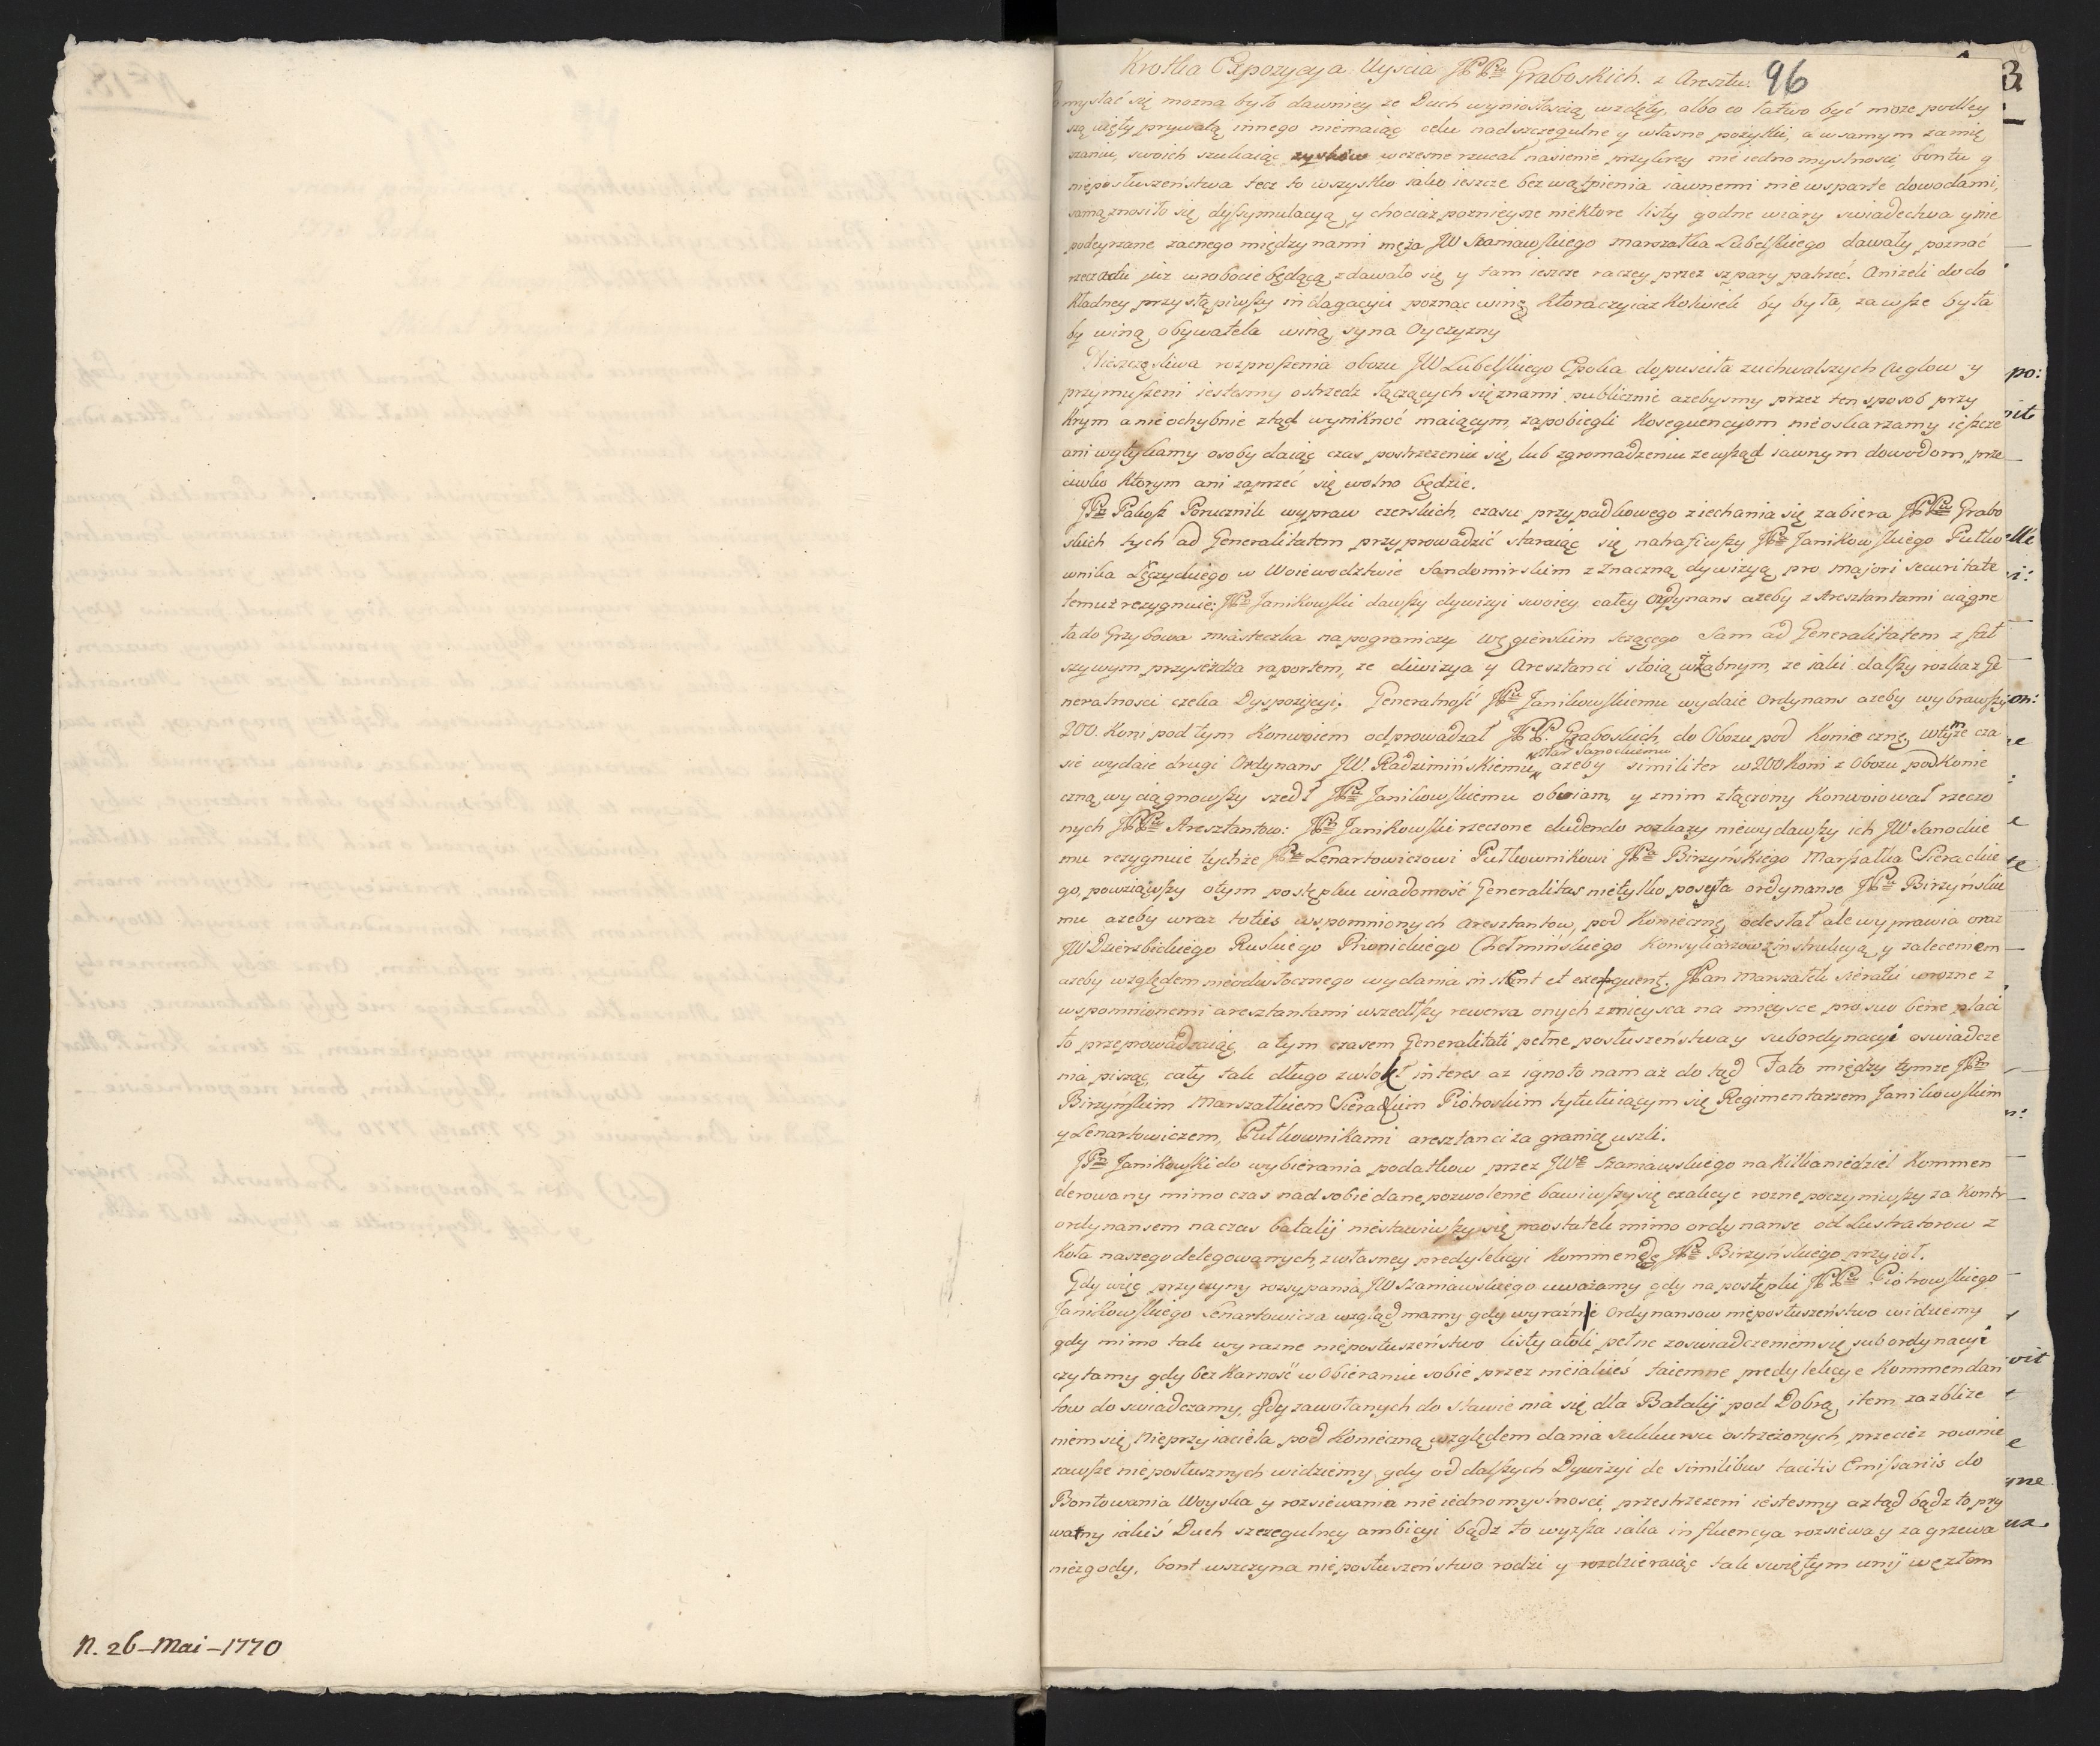 N. 26-Mai-1770
Krotka Expozycya Uyscia JPPw Graboskich z Aresztu.
96
3
myslać się mozna było dawniey ze Duch wyniosłoscią wzdęty, albo co łatwo być moze podley
szą uięty prywatą innego niemaiąc celu nad szczegulne y własne pozytki, a w samym zamię
szaniu, swoich szukaiąc zyskow wczesne rzucał nasienie przykrey nie iednomyslnosci, bontu y
nieposłuszeństwa lecz to wszystko iako ieszcze bez wątpienia iawnemi nie wsparte dowodami,
samą znosiło się dyssymulacyą, y chociaz poznieysze niektore listy godne wiary swiadectwa y nie
podeyrzane zacnego między nami męża JW Szaniawskiego marszałka Lubelskiego dawały poznać
rzecz tu juz w robocie będącą, zdawało się y tam ieszcze raczey przez szpary patrzeć. Anizeli do do
kładney przystąpiwszy indagacyi poznac winę, ktora czyiaz kolwiek by była, zawsze była
by winą obywatela winą syna Oyczyzny
Nieszczęsliwa rozproszenia obozu JW Lubelskiego Epoka dopusciła zuchwalszych Cuglow y
przymuszeni iestesmy ostrzedz łączących się z nami publicznie azebysmy przez ten sposob przy
krym a nieochybnie ztąd wyniknoć maiącym, zapobiegli Kosequencyom nieoskarzamy ieszcze
ani wytykamy osoby daiąc czas postrzezeniu się, lub zgromadzeniu zewsząd iawnym dowodom prze
ciwko ktorym ani zaprzeć się wolno będzie.
JPn Pakosz Porucznik wypraw czerskich, czasu przypadkowego ziechania się zabiera JPPw Grabo
skich tych ad Generalitatem przyprowadzić staraiąc się natrafiwszy JPa Janikowskiego Pułko
wnika Łęczyckiego w Woiewodztwie Sandomirskim z znaczną dywizyą pro majori securitate
temuz rezygnuie: JPn Janikowski dawszy dywizyi swoiey całey Ordynans azeby z Aresztantami ciągne
ła do Grzybowa miasteczka na pograniczu węgierskim leżącego Sam ad Generalitatem z fał
szywym przyiezdza raportem, ze diwizya y Aresztanci stoią w Żabnym, ze iaki dalszy rozkaz Ge
neralnosci czeka Dyspozycyi. Generalność JPu Janikowskiemu wydaie Ordynans azeby wybrawszy
200. Koni pod tym Konwoiem odprowadzał JPP. Graboskich do Obozu pod Konieczną, w tymze cza
sie wydaie drugi Ordynans JW. Radzimińskiemu Mar Sanockiemu azeby similiter w 200 Koni z Obozu pod Konie
czną wyciągnowszy szedł JPu Janikowskiemu obviam y z nim złączony Konwoiował rzeczo
nych JPPw Aresztantow: JPn Janikowski rzeczone eludendo rozkazy niewydawszy ich JW Sanockie
mu rezygnuie tychze JPu Lenartowiczowi Pułkownikowi JPa Birzyńskiego Marszałka Sieradzkie
go, powziąwszy o tym postępku wiadomość Generalitas nietylko posyła ordynanse JPu Birzyńskie
mu azeby wraz toties wspomnionych aresztantow, pod Konieczną odesłał ale wyprawia oraz
JW Dzierzbickiego Ruskiego Piwnickiego Chełmińskiego Konsyliarzow z Instrukcyą, y zaleceniem
azeby względem nieodwłocznego wydania instent et exequentę. JPan Marszałek Sieradz w rozne z
wspomnionemi aresztantami wszedłszy rewersa onych z mieysca na mieysce pro suo bene placi
to przeprowadzaiąc, a tym czasem Generalitati pełne posłuszeństwa y subordynacyi oswiadcze
nia pisząc, cały tak długo zwlokł interes az ignoto nam aż do tąd Fato między tymze JPm
Birzyńskim Marszałkiem Sieradzkim Piotroskim tytułuiącym się Regimentarzem Janikowskim
y Lenartowiczem, Pułkownikami aresztanci za granicę uszli.
JPn Janikowski do wybierania podatkow przez JWo Szaniawskiego na kilka niedziel kommen
derowany mimo czas nad sobie dane pozwolenie bawiwszy się exakcye rozne poczyniwszy za kontr
ordynansem na czas batalij niestawiwszy się, naostatek mimo ordynanse od Lustratorow z
Koła naszego delegowanych, z własney predylekcyi kommendę JPa Birzyńskiego przyioł.
Gdy więc przyczyny rozsypania JW Szaniawskiego uważamy gdy na postępki JPPw Piotrowskiego
Janikowskiego Lenartowicza wzgląd mamy gdy wyraźne Ordynansow nieposłuszeństwo widziemy
gdy mimo tak wyrazne nieposłuszeństwo listy atoli pełne z oswiadczeniem się subordynacyi
czytamy gdy bezkarność w Obieraniu sobie przez nieiakieś taiemne predylekcye Kommendan
tow doswiadczamy, gdy zawołanych do stawienia się dla Batalij pod Dobrą, item za zblize
niem się Nieprzyiaciela pod Konieczną względem dania sukkursu ostrzeżonych, przecież rownie
zawsze nieposłusznych widziemy, gdy od dalszych Dywizyi de similibus tacitis Emissariis do
Bontowania Woyska y rozsiewania nieiednomyslnosci, przestrzezeni iestesmy az tąd bądz to pry
watny iakiś Duch szczegulney ambicyi bądz to wyzsza iaka influencya rozsiewa y zagrzewa
niezgody, bont wszczyna nieposłuszeństwo rodzi y rozdzieraiąc tak swiętym unij węzłem